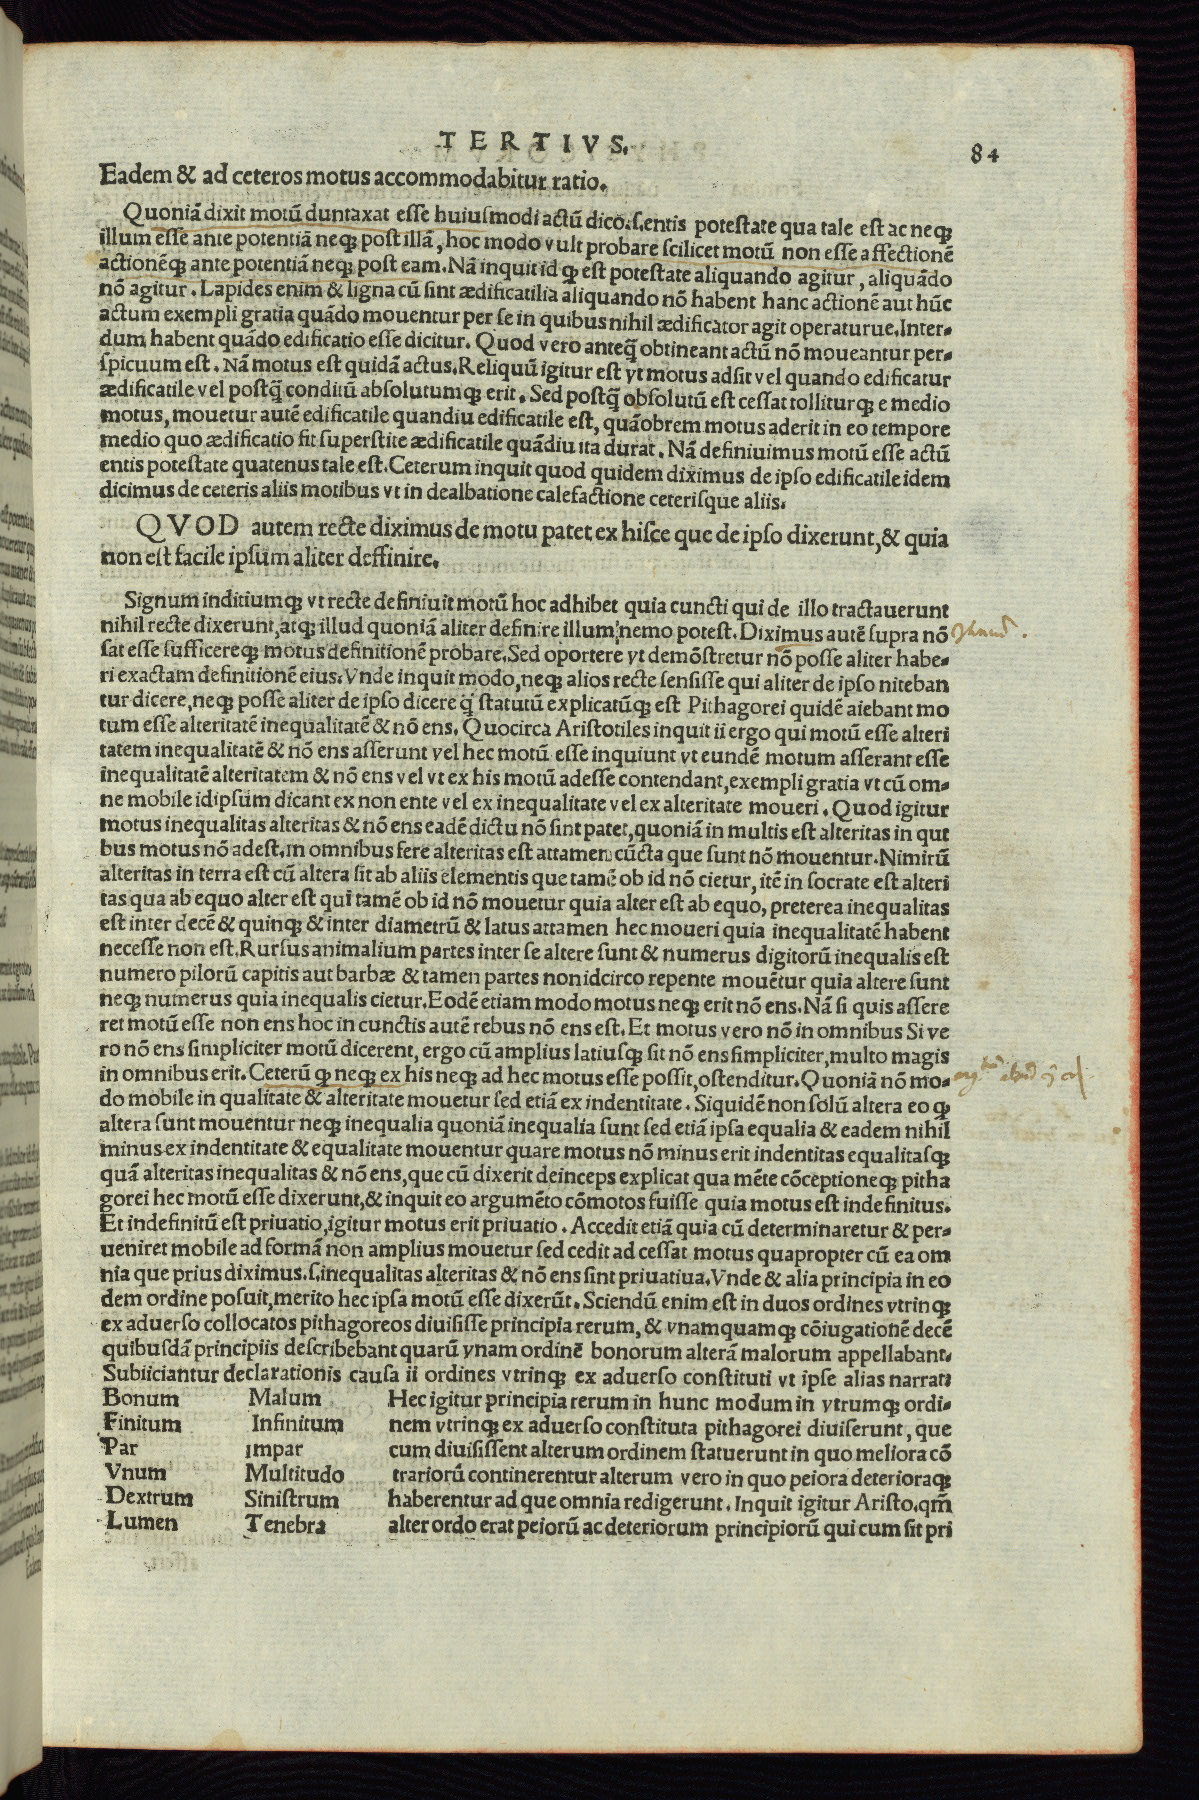 TERTIVS.
84
Eadem & ad ceteros motus accommodabitur ratio.
Quoniā dixit motū duntaxat esse huiusmodi actū dico.s.entis potestate qua tale est ac neqꝫ
illum esse ante potentiā neqꝫ post illā, hoc modo vult probare scilicet motū non esse affectionē
actionēqꝫ ante potentiā neqꝫ post eam. Nā inquit id qꝫ est potestate aliquando agitur, aliquādo
nō agitur. Lapides enim & ligna cū sint ædificatilia aliquando nō habent hanc actionē aut hūc
actum exempli gratia quādo mouentur per se in quibus nihil ædificator agit operaturue. Inter-
dum habent quādo edificatio esse dicitur. Quod vero anteq̄ obtineant actū nō moueantur per-
spicuum est. Nā motus est quidā actus. Reliquū igitur est vt motus adsit vel quando edificatur
ædificatile vel postq̄ conditū absolutumqꝫ erit. Sed postq̄ obsolutū est cessat tolliturqꝫ e medio
motus, mouetur autē edificatile quandiu edificatile est, quāobrem motus aderit in eo tempore
medio quo ædificatio fit superstite ædificatile quādiu ita durat. Nā definiuimus motū esse actū
entis potestate quatenus tale est. Ceterum inquit quod quidem diximus de ipso edificatile idem
dicimus de ceteris aliis motibus vt in dealbatione calefactione ceterisque aliis.
QVOD autem recte diximus de motu patet ex hisce que de ipso dixerunt, & quia
non est facile ipsum aliter deffinire.
Signum inditiumqꝫ vt recte definiuit motū hoc adhibet quia cuncti qui de illo tractauerunt
nihil recte dixerunt, atqꝫ illud quoniā aliter definire illum nemo potest. Diximus autē supra nō
sat esse sufficereqꝫ motus definitionē probare. Sed oportere vt demōstretur nō posse aliter habe-
ri exactam definitionē eius. Vnde inquit modo, neqꝫ alios recte sensisse qui aliter de ipso niteban
tur dicere, neqꝫ posse aliter de ipso dicere q̄ statutū explicatūqꝫ est Pithagorei quidē aiebant mo
tum esse alteritatē inequalitatē & nō ens. Quocirca Aristotiles inquit ii ergo qui motū esse alteri
tatem inequalitatē & nō ens asserunt vel hec motū esse inquiunt vt eundē motum asserant esse
inequalitatē alteritatem & nō ens vel vt ex his motū adesse contendant, exempli gratia vt cū om-
ne mobile idipsum dicant ex non ente vel ex inequalitate vel ex alteritate moueri. Quod igitur
motus inequalitas alteritas & nō ens eadē dictu nō sint patet, quoniā in multis est alteritas in qui
bus motus nō adest. in omnibus fere alteritas est attamen cūcta que sunt nō mouentur. Nimirū
alteritas in terra est cū altera sit ab aliis elementis que tamē ob id nō cietur, itē in socrate est alteri
tas qua ab equo alter est qui tamē ob id nō mouetur quia alter est ab equo, preterea inequalitas
est inter decē & quinqꝫ & inter diametrū & latus attamen hec moueri quia inequalitatē habent
necesse non est. Rursus animalium partes inter se altere sunt & numerus digitorū inequalis est
numero pilorū capitis aut barbæ & tamen partes non idcirco repente mouētur quia altere sunt
neqꝫ numerus quia inequalis cietur. Eodē etiam modo motus neqꝫ erit nō ens. Nā si quis assere
ret motū esse non ens hoc in cunctis autē rebus nō ens est. Et motus vero nō in omnibus Si ve
ro nō ens simpliciter motū dicerent, ergo cū amplius latiusqꝫ sit nō ens simpliciter, multo magis
in omnibus erit. Ceterū qꝫ neqꝫ ex his neqꝫ ad hec motus esse possit, ostenditur. Quoniā nō mo-
do mobile in qualitate & alteritate mouetur sed etiā ex indentitate. Siquidē non solū altera eo qꝫ
altera sunt mouentur neqꝫ inequalia quoniā inequalia sunt sed etiā ipsa equalia & eadem nihil
minus ex indentitate & equalitate mouentur quare motus nō minus erit indentitas equalitasqꝫ
quā alteritas inequalitas & nō ens, que cū dixerit deinceps explicat qua mēte cōceptioneqꝫ pitha
gorei hec motū esse dixerunt, & inquit eo argumēto cōmotos fuisse quia motus est indefinitus.
Et indefinitū est priuatio, igitur motus erit priuatio. Accedit etiā quia cū determinaretur & per-
ueniret mobile ad formā non amplius mouetur sed cedit ad cessat motus quapropter cū ea om
nia que prius diximus.s.inequalitas alteritas & nō ens sint priuatiua. Vnde & alia principia in eo
dem ordine posuit, merito hec ipsa motū esse dixerūt. Sciendū enim est in duos ordines vtrinqꝫ
ex aduerso collocatos pithagoreos diuisisse principia rerum, & vnamquamqꝫ cōiugationē decē
quibusdā principiis describebant quarū vnam ordinē bonorum alterā malorum appellabant.
Subiiciantur declarationis causa ii ordines vtrinqꝫ ex aduerso constituti vt ipse alias narrat
Bonum Malum Hec igitur principia rerum in hunc modum in vtrumqꝫ ordi-
Finitum Infinitum nem vtrinqꝫ ex aduerso constituta pithagorei diuiserunt, que
Par impar cum diuisissent alterum ordinem statuerunt in quo meliora cō
Vnum Multitudo trariorū continerentur alterum vero in quo peiora deterioraqꝫ
Dextrum Sinistrum haberentur ad que omnia redigerunt. Inquit igitur Aristo. qm̄
Lumen Tenebra alter ordo erat peiorū ac deteriorum principiorū qui cum sit pri